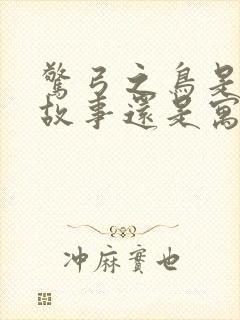 驚弓之鳥是
故事還是寓
冲麻實也